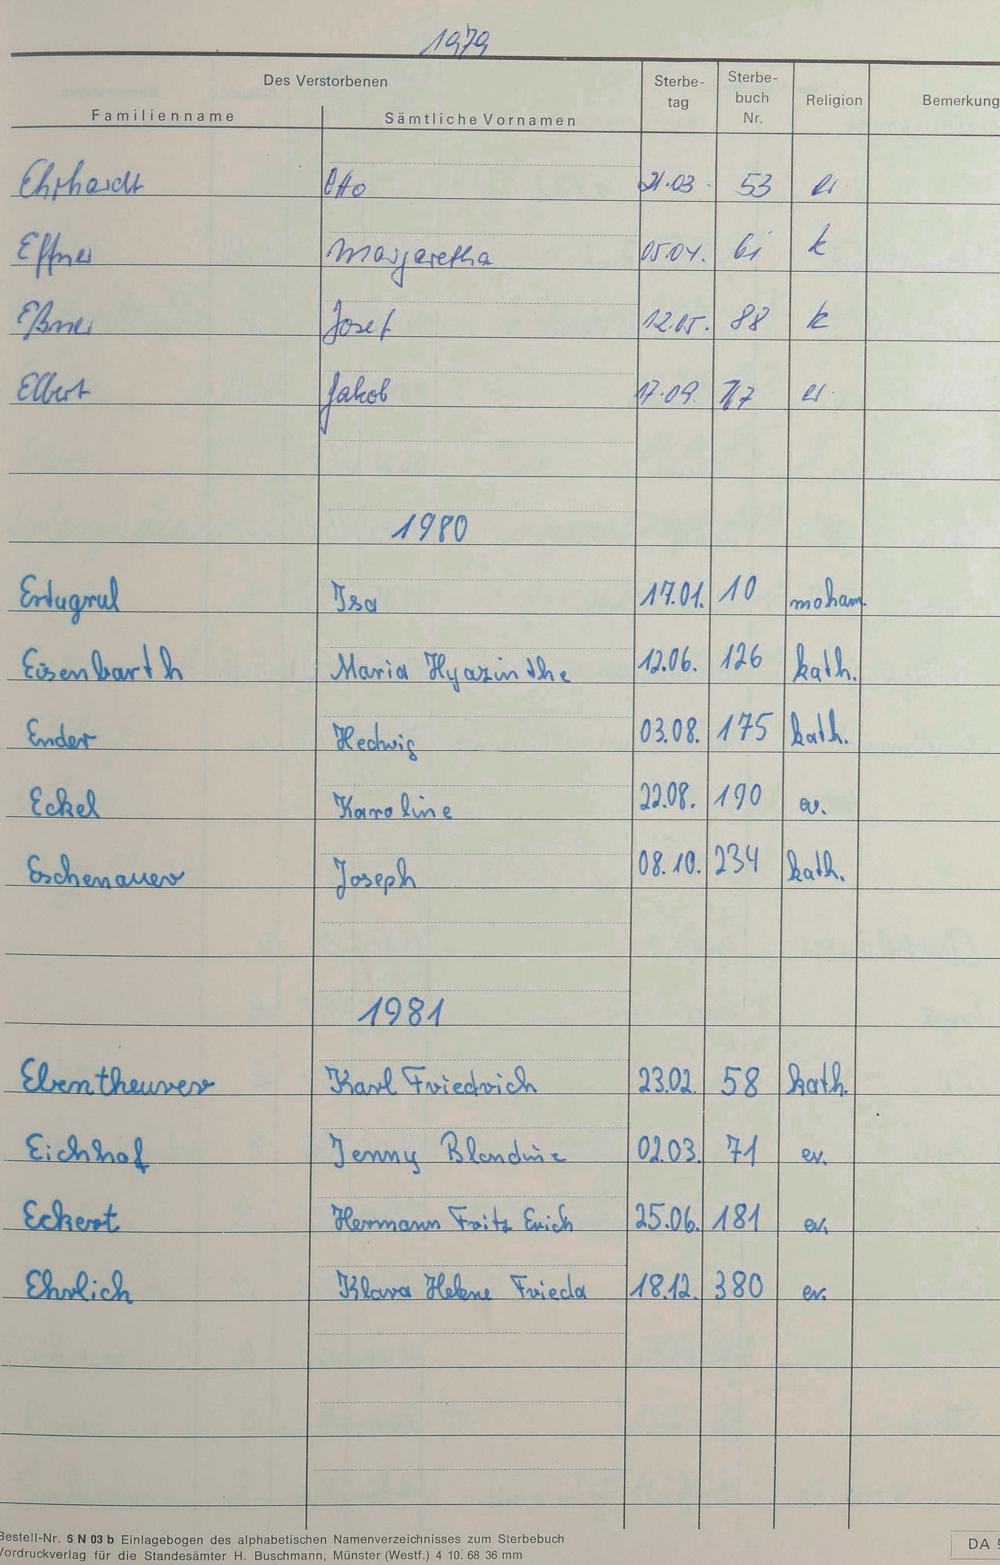 1979
Des Verstorbenen Sterbe- Sterbe-
tag buch Religion Bemerkung
Familienname Sämtliche Vornamen Nr.
Ehrhardt Otto 21.03. 53 ev.
Effner Margaretha 05.04. 61 k
Eßner Josef 12.05. 88 k
Elbert Jakob 17.09. ev.
1980
Ertugrul Isa 17.01. 10 moham.
Eisenbarth Maria Hyazinthe 12.06. 126 kath.
Ender Hedwig 03.08. 175 kath.
Eckel Karoline 22.08. 190 ev.
Eschenauer Joseph 08.10. 234 kath.
1981
Ebentheurer Karl Friedrich 23.02. 58 kath.
Eichhof Jenny Blandine 02.03. 71 ev.
Eckert Hermann Fritz Erich 25.06. 181 ev.
Ehrlich Klara Helene Frieda 18.12. 380 ev.
Bestell-Nr. 5 N 03 b Einlagebogen des alphabetischen Namenverzeichnisses zum Sterbebuch
Vordruckverlag für die Standesämter H. Buschmann, Münster (Westf.) 4 10. 68 36 mm
DA